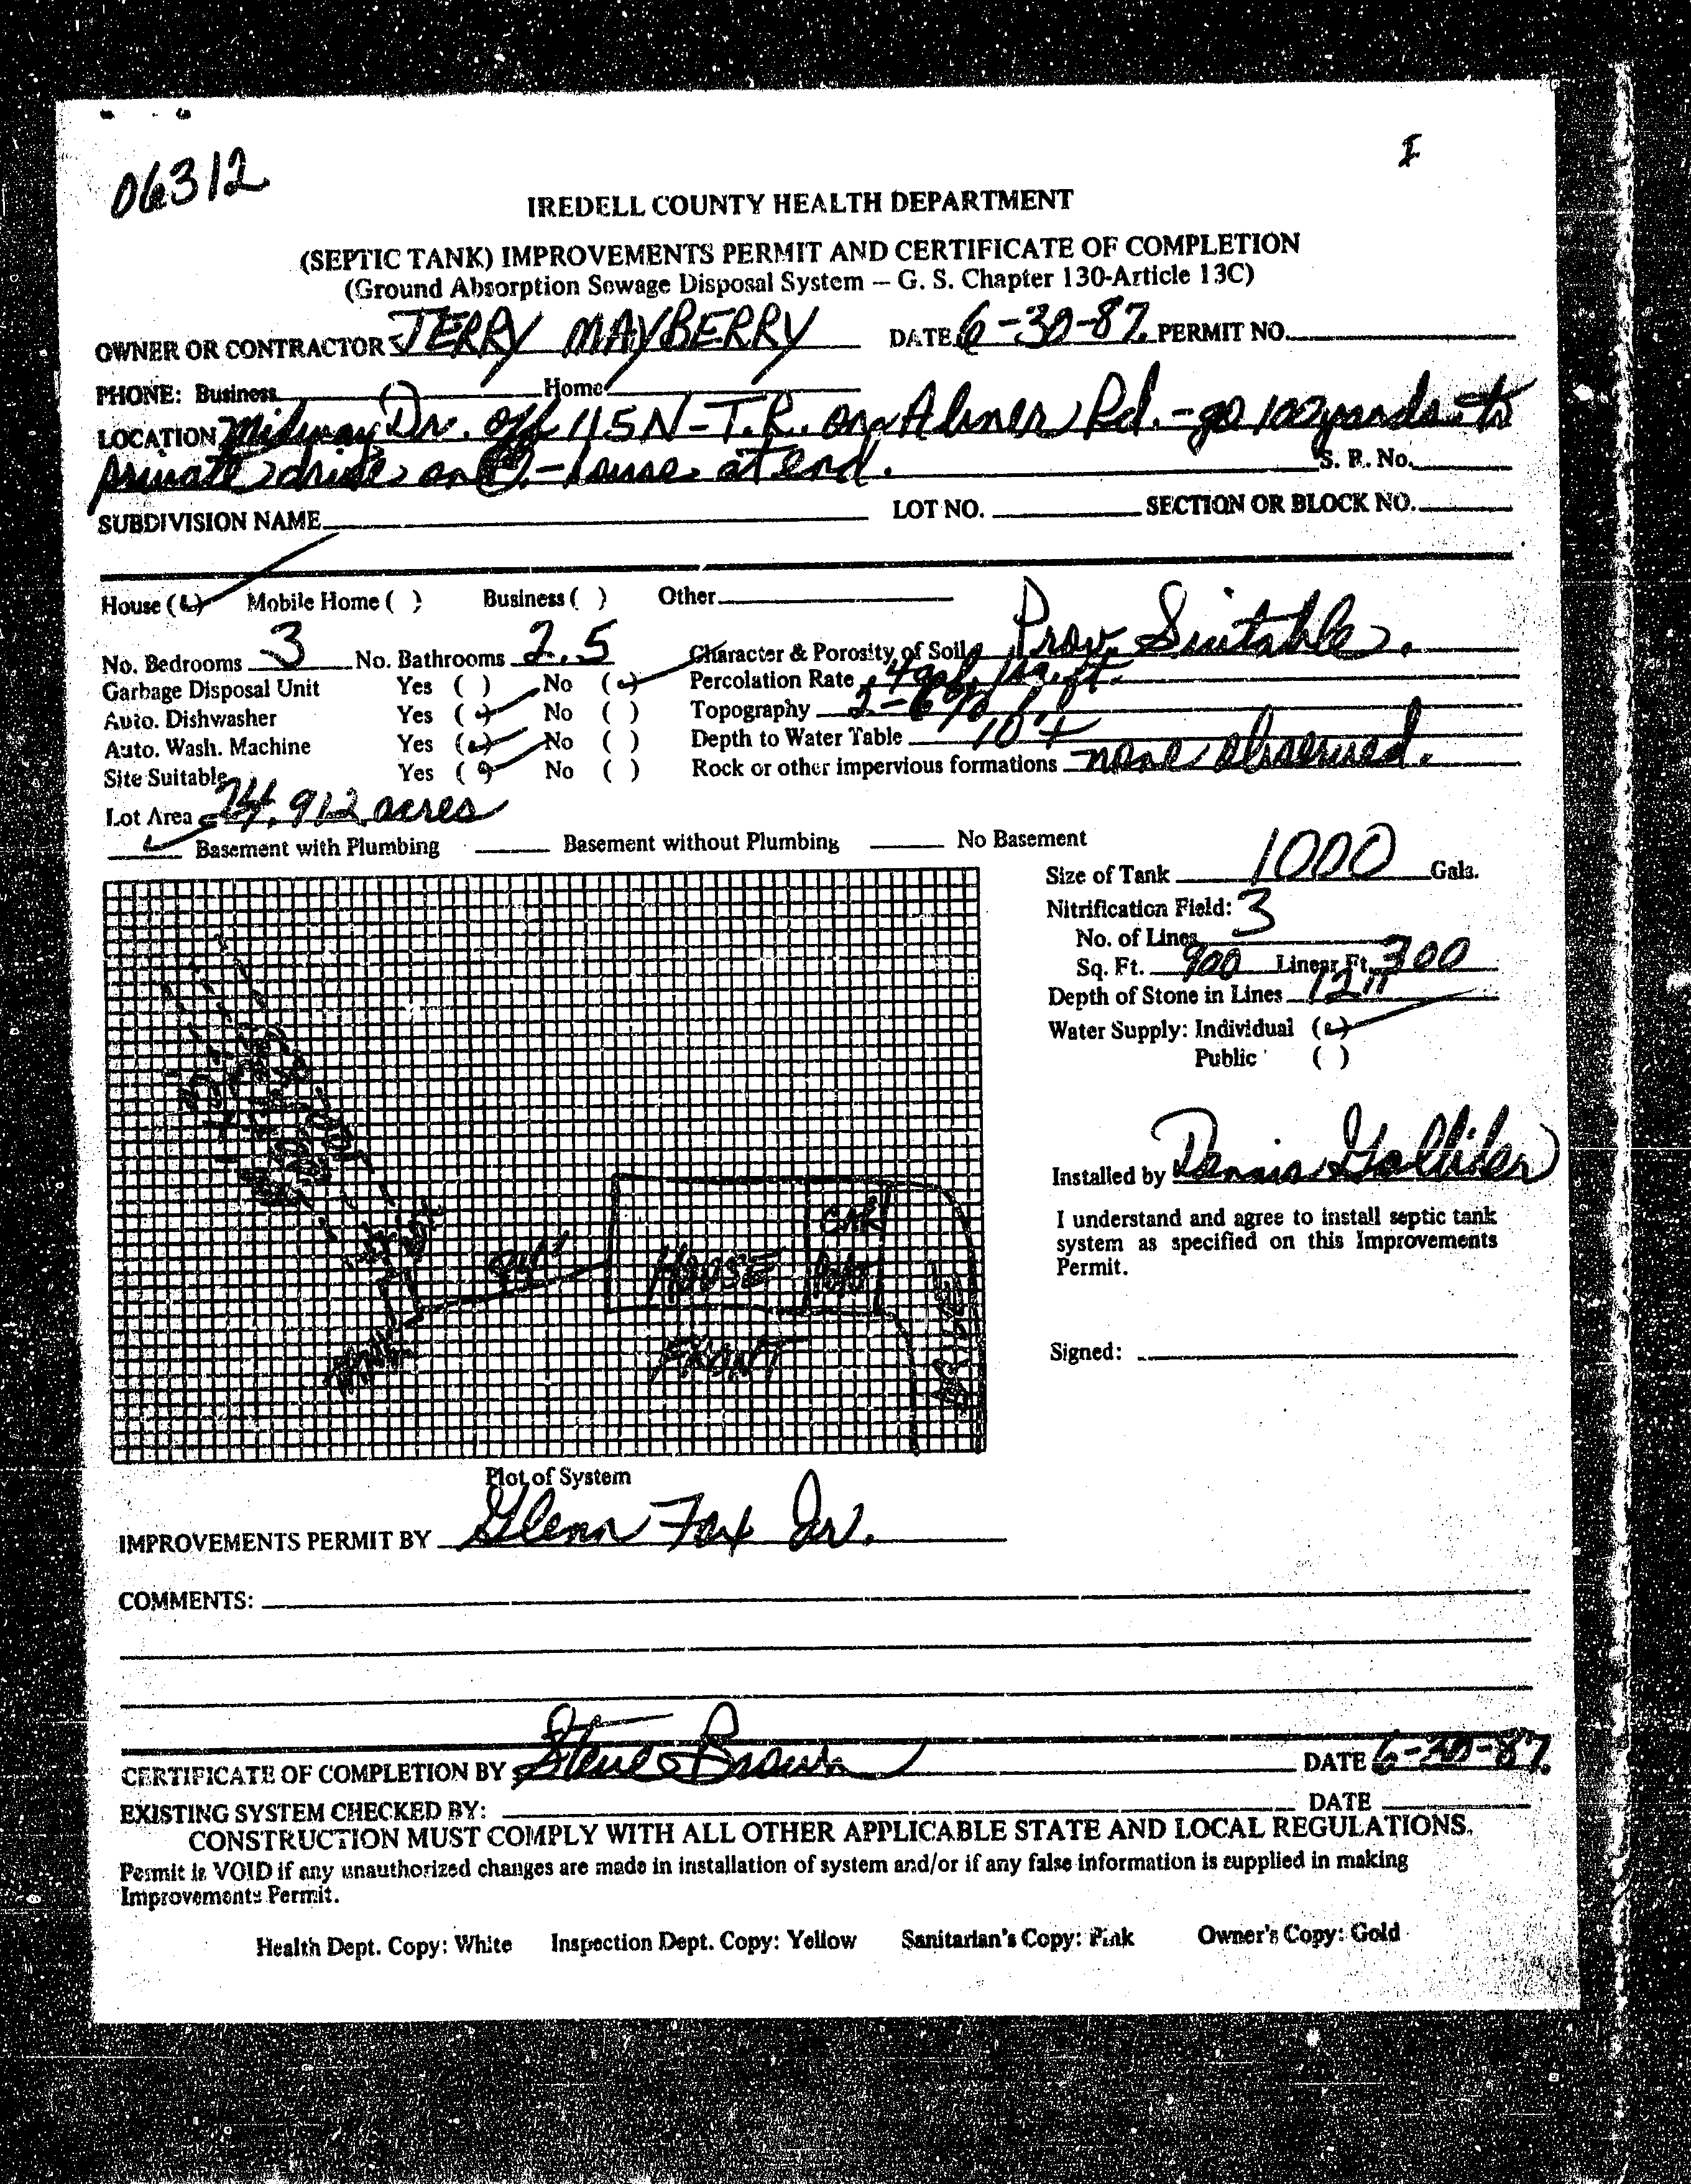 06312
I
IREDELL COUNTY HEALTH DEPARTMENT
(SEPTIC TANK) IMPROVEMENTS PERMIT AND CERTIFICATE OF COMPLETION
(Ground Absorption Sewage Disposal System – G. S. Chapter 130-Article 13C)
OWNER OR CONTRACTOR JERRY MAYBERRY DATE 6-30-87 PERMIT NO.
PHONE: Business Home
LOCATION Midway Dr. off 115N - T.R. on Abner Rd. - go 102 yards to
private drive on - house at end. S. R. No.
SUBDIVISION NAME LOT NO. SECTION OR BLOCK NO.
House (✓) Mobile Home ( ) Business ( ) Other
No. Bedrooms 3 No. Bathrooms 2.5 Character & Porosity of Soil Prov. Suitable.
Garbage Disposal Unit Yes ( ) No (✓) Percolation Rate .4 gal./sq.ft.
Auto. Dishwasher Yes (✓) No ( ) Topography 2-6%
Auto. Wash. Machine Yes (✓) No ( ) Depth to Water Table 10'+
Site Suitable Yes (✓) No ( ) Rock or other impervious formations none observed.
Lot Area 74.912 acres
✓ Basement with Plumbing Basement without Plumbing No Basement
Size of Tank 1000 Gals.
Nitrification Field:
No. of Lines 3
Sq. Ft. 900 Linear Ft. 300
Depth of Stone in Lines 12"
Water Supply: Individual (✓)
Public ( )
Installed by Dennis Holliber
I understand and agree to install septic tank
system as specified on this Improvements
Permit.
Signed:
94'
HOUSE
CAR
PORT
FRONT
TANK
DRIVE
Plot of System
IMPROVEMENTS PERMIT BY Glenn Fox Jr.
COMMENTS:
CERTIFICATE OF COMPLETION BY Steve Brown DATE 6-30-87
EXISTING SYSTEM CHECKED BY: DATE
CONSTRUCTION MUST COMPLY WITH ALL OTHER APPLICABLE STATE AND LOCAL REGULATIONS.
Permit is VOID if any unauthorized changes are made in installation of system and/or if any false information is supplied in making
Improvements Permit.
Health Dept. Copy: White Inspection Dept. Copy: Yellow Sanitarian's Copy: Pink Owner's Copy: Gold